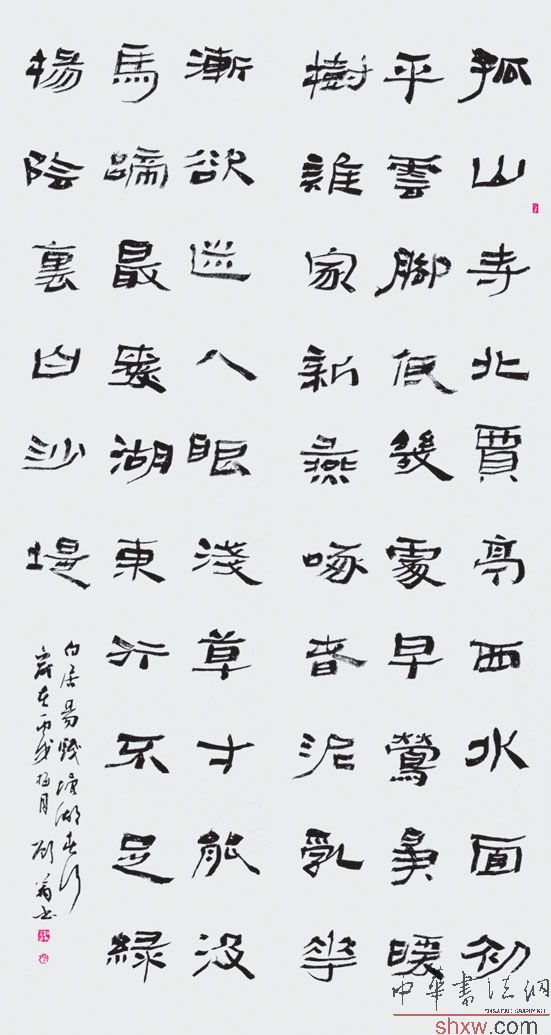 孤山寺北賈亭西水面初
平雲腳低幾處早鶯爭暖
樹誰家新燕啄春泥亂花
漸欲迷人眼淺草才能沒
馬蹄最愛湖東行不足綠
楊陰裏白沙堤
白居易錢塘湖春行
歲在丙戌梅月
中華書法網
shxw.com